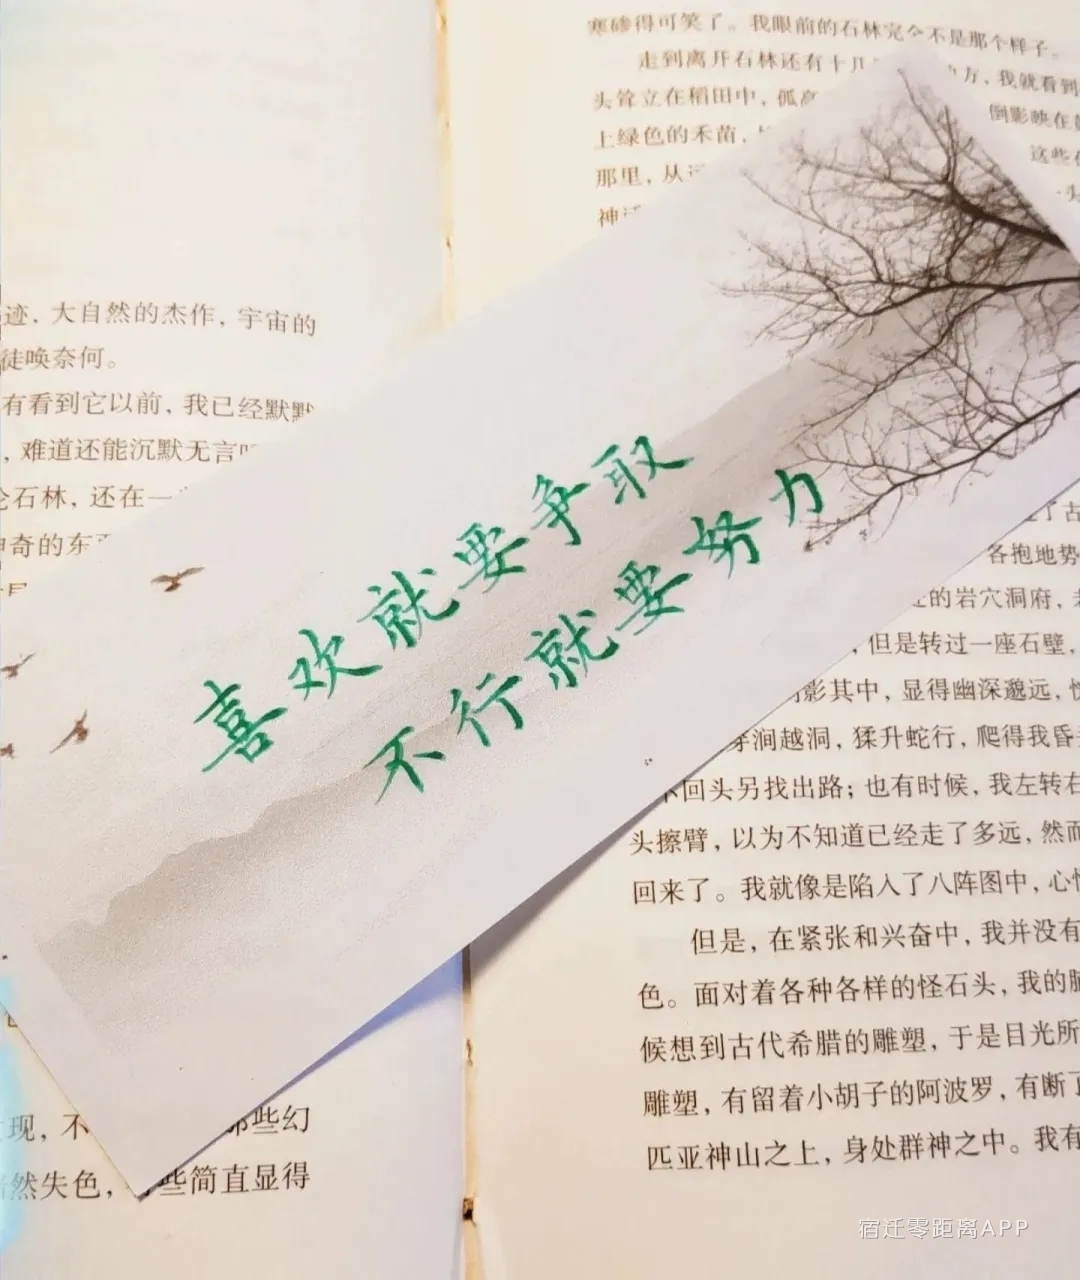 喜欢就要争取
不行就要努力
迹，大自然的杰作，宇宙的
徒唤奈何。
有看到它以前，我已经默默
，难道还能沉默无言
石林，还在一
奇的东
现，不 那些幻
然失色， 些简直显得
寒碜得可笑了。我眼前的石林完全不是那个样子。
走到离开石林还有十几 方，我就看到
头耸立在稻田中，孤高 倒影映在
上绿色的禾苗， 这些
那里，从远
神
了古
各抱地势
的岩穴洞府，
，但是转过一座石壁，
影其中，显得幽深邈远，
穿涧越洞，猱升蛇行，爬得我昏
回头另找出路；也有时候，我左转右
头擦臂，以为不知道已经走了多远，然而
回来了。我就像是陷入了八阵图中，心
但是，在紧张和兴奋中，我并没有
色。面对着各种各样的怪石头，我的脑
候想到古代希腊的雕塑，于是目光所
雕塑，有留着小胡子的阿波罗，有断了
匹亚神山之上，身处群神之中。我有
宿迁零距离APP